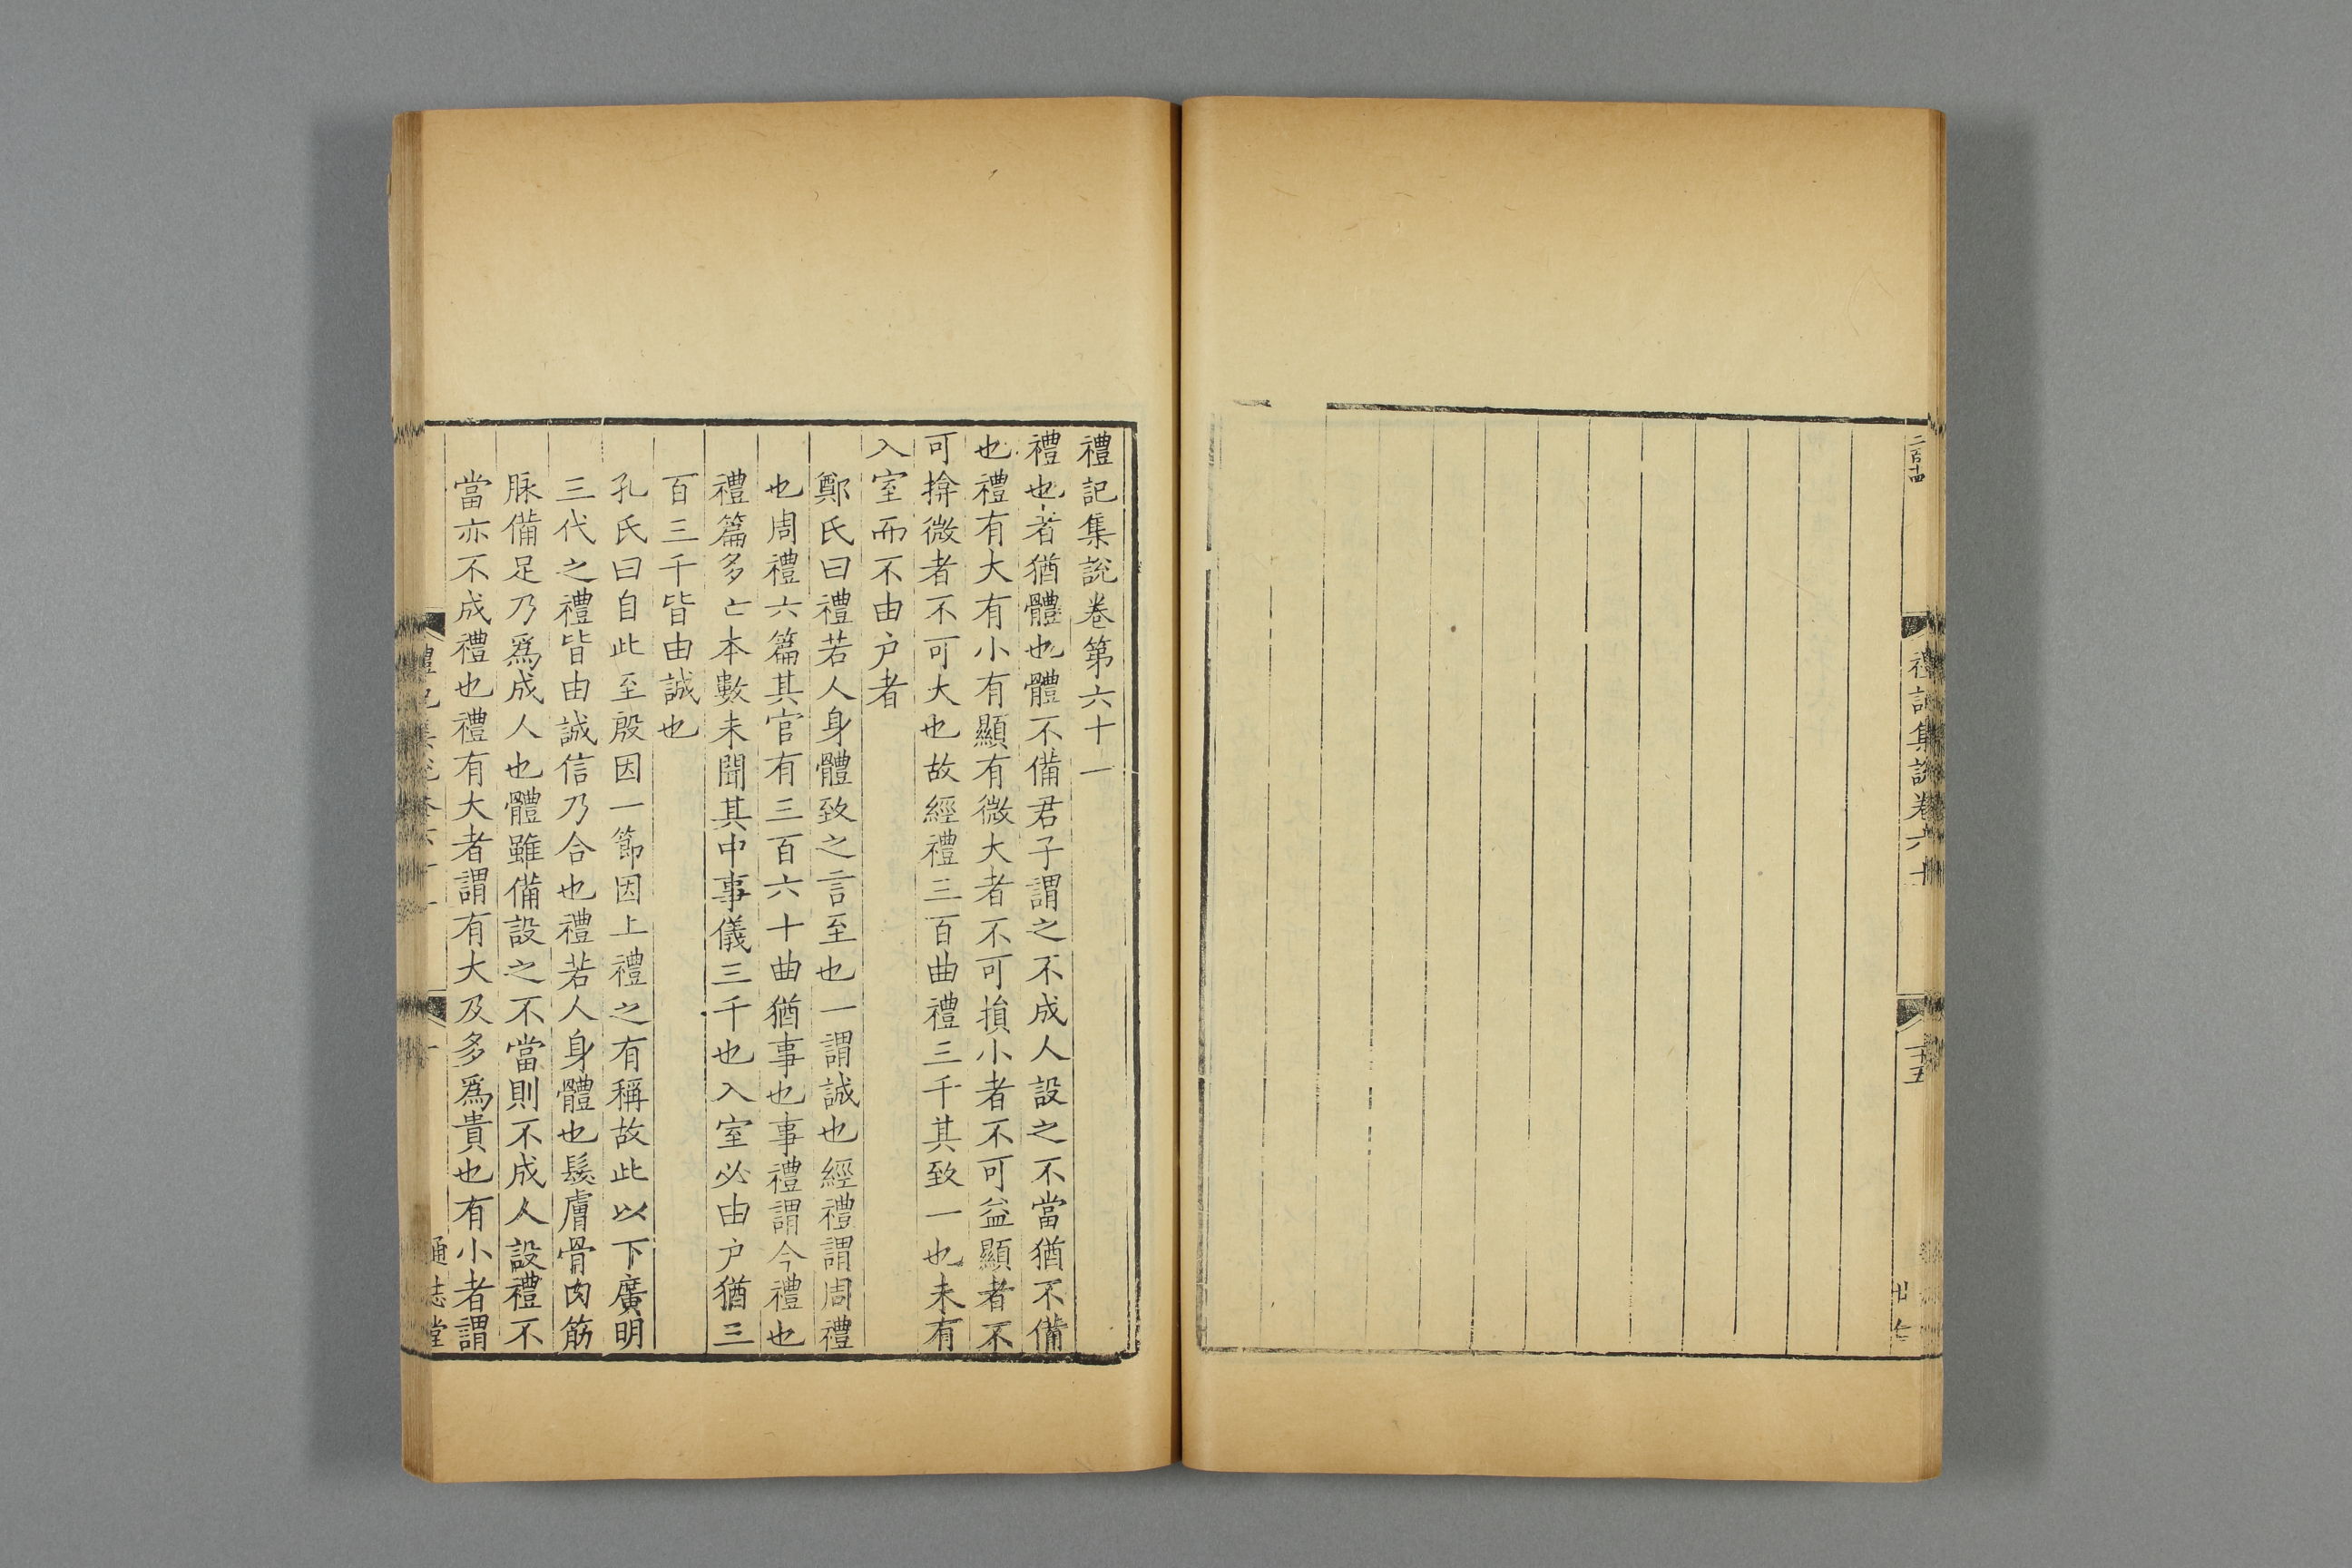 二百十四
禮記集說卷六十
十五
禮記集說卷第六十一
禮也者猶體也體不備君子謂之不成人設之不當猶不備
也禮有大有小有顯有微大者不可損小者不可益顯者不
可揜微者不可大也故經禮三百曲禮三千其致一也未有
入室而不由户者
鄭氏曰禮若人身體致之言至也一謂誠也經禮謂周禮
也周禮六篇其官有三百六十曲猶事也事禮謂今禮也
禮篇多亡本數未聞其中事儀三千也入室必由户猶三
百三千皆由誠也
孔氏曰自此至殷因一節因上禮之有稱故此以下廣明
三代之禮皆由誠信乃合也禮若人身體也髮膚骨肉筋
脉備足乃爲成人也體雖備設之不當則不成人設禮不
當亦不成禮也禮有大者謂有大及多爲貴也有小者謂
禮記集說卷六十一
一
通志堂